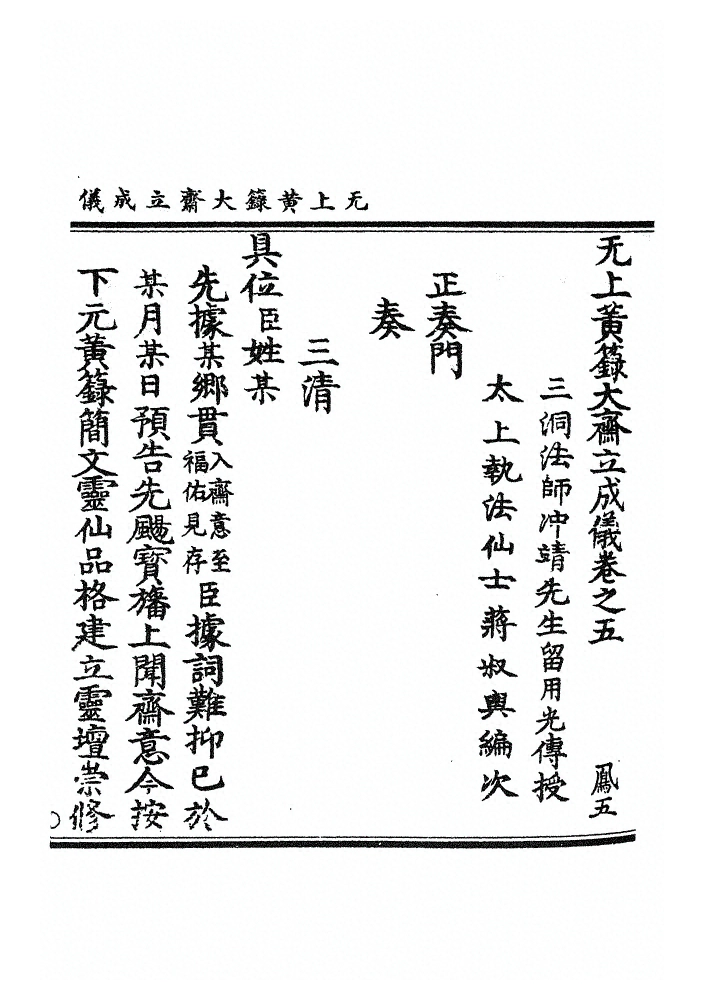 无上黄籙大齋立成儀
无上黃籙大齋立成儀卷之五 鳳五
三洞法師冲靖先生留用光傳授
太上執法仙士蔣叔輿編次
正奏門
奏
三清
具位臣姓某
先據某鄉貫入齋意至福佑見存臣據詞難抑已於
某月某日預告先颺寳旛上聞齋意今按
下元黃籙簡文靈仙品格建立靈壇崇修